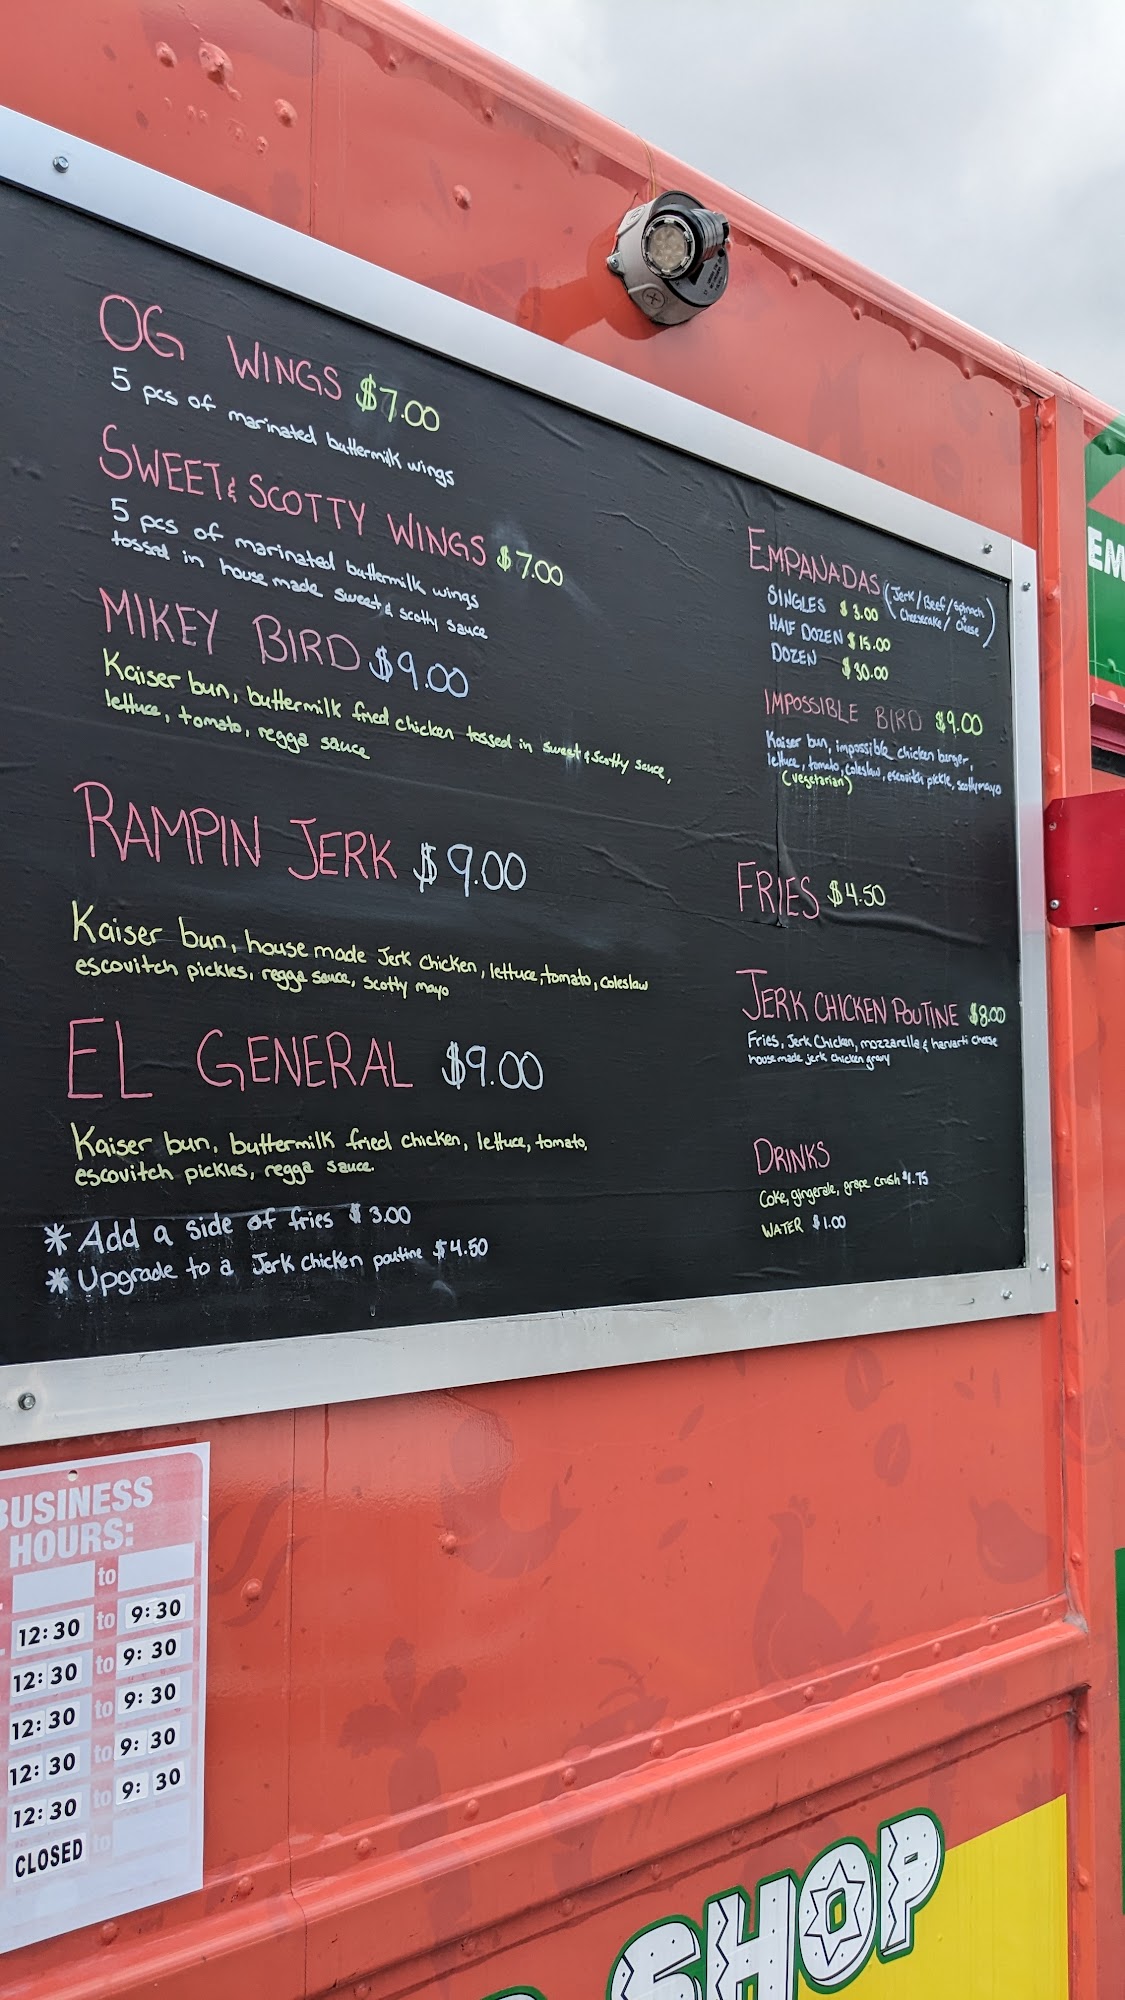 OG WINGS $7.00
5 pcs of marinated buttermilk wings
SWEET & SCOTTY WINGS $7.00
5 pcs of marinated buttermilk wings
tossed in house made sweet & scotty sauce
MIKEY BIRD $9.00
Kaiser bun, buttermilk fried chicken tossed in sweet & scotty sauce,
lettuce, tomato, regga sauce
RAMPIN JERK $9.00
Kaiser bun, house made Jerk chicken, lettuce, tomato, coleslaw
escovitch pickles, regga sauce, scotty mayo
EL GENERAL $9.00
Kaiser bun, buttermilk fried chicken, lettuce, tomato,
escovitch pickles, regga sauce.
* Add a side of fries $3.00
* Upgrade to a Jerk chicken poutine $4.50
EMPANADAS (Jerk/Beef/Spinach + Cheese
Cheesecake/)
SINGLES $3.00
HALF DOZEN $15.00
DOZEN $30.00
IMPOSSIBLE BIRD $9.00
Kaiser bun, impossible chicken burger,
lettuce, tomato, coleslaw, escovitch pickle, scotty mayo
(vegetarian)
FRIES $4.50
JERK CHICKEN POUTINE $8.00
Fries, Jerk Chicken, mozzarella & harvarti cheese
house made jerk chicken gravy
DRINKS
Coke, gingerale, grape crush $1.75
WATER $1.00
EM
BUSINESS
HOURS:
to
12:30 to 9:30
12:30 to 9:30
12:30 to 9:30
12:30 to 9:30
12:30 to 9:30
CLOSED to
SHOP